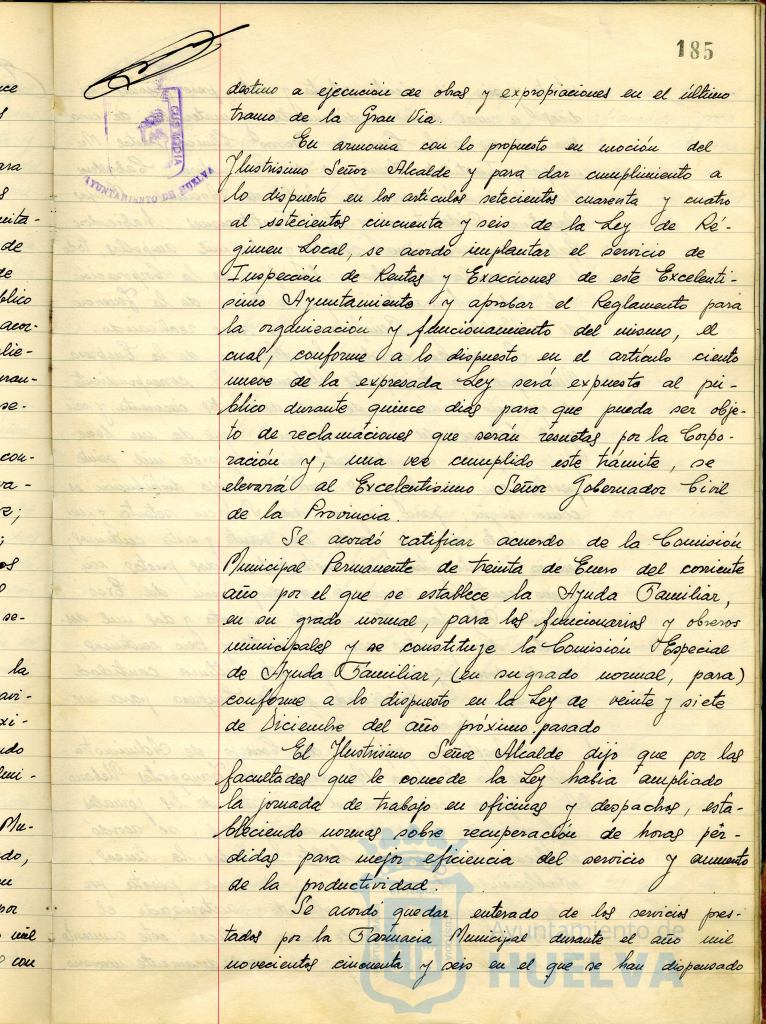 185
destino a ejecución de obras y expropiaciones en el último
tramo de la Gran Vía.
En armonia con lo propuesto en moción del
Ilustrisimo Señor Alcalde y para dar cumplimiento a
lo dispuesto en los artículos setecientos cuarenta y cuatro
al setecientos cincuenta y seis de la Ley de Ré-
gimen Local, se acordo implantar el servicio de
Inspección de Rentas y Exacciones de este Excelenti-
simo Ayuntamiento y aprobar el Reglamento para
la organización y funcionamiento del mismo, el
cual, conforme a lo dispuesto en el artículo ciento
nueve de la expresada Ley será expuesto al pú-
blico durante quince dias para que pueda ser obje-
to de reclamaciones que serán resueltas por la Corpo-
ración y, una vez cumplido este trámite, se
elevará al Excelentisimo Señor Gobernador Civil
de la Provincia.
Se acordó ratificar acuerdo de la Comisión
Municipal Permanente de treinta de Enero del corriente
año por el que se establece la Ayuda Familiar,
en su grado normal, para los funcionarios y obreros
municipales y se constituye la Comisión Especial
de Ayuda Familiar, (en su grado normal, para)
conforme a lo dispuesto en la Ley de veinte y siete
de Diciembre del año próximo pasado
El Ilustrisimo Señor Alcalde dijo que por las
facultades que le concede la Ley habia ampliado
la jornada de trabajo en oficinas y despachos, esta-
bleciendo normas sobre recuperación de horas per-
didas para mejor eficiencia del servicio y aumento
de la productividad.
Se acordó quedar enterado de los servicios pres-
tados por la Farmacia Municipal durante el año mil
novecientos cincuenta y seis en el que se han dispensado
AYUNTAMIENTO DE HUELVA
Ayuntamiento de
HUELVA